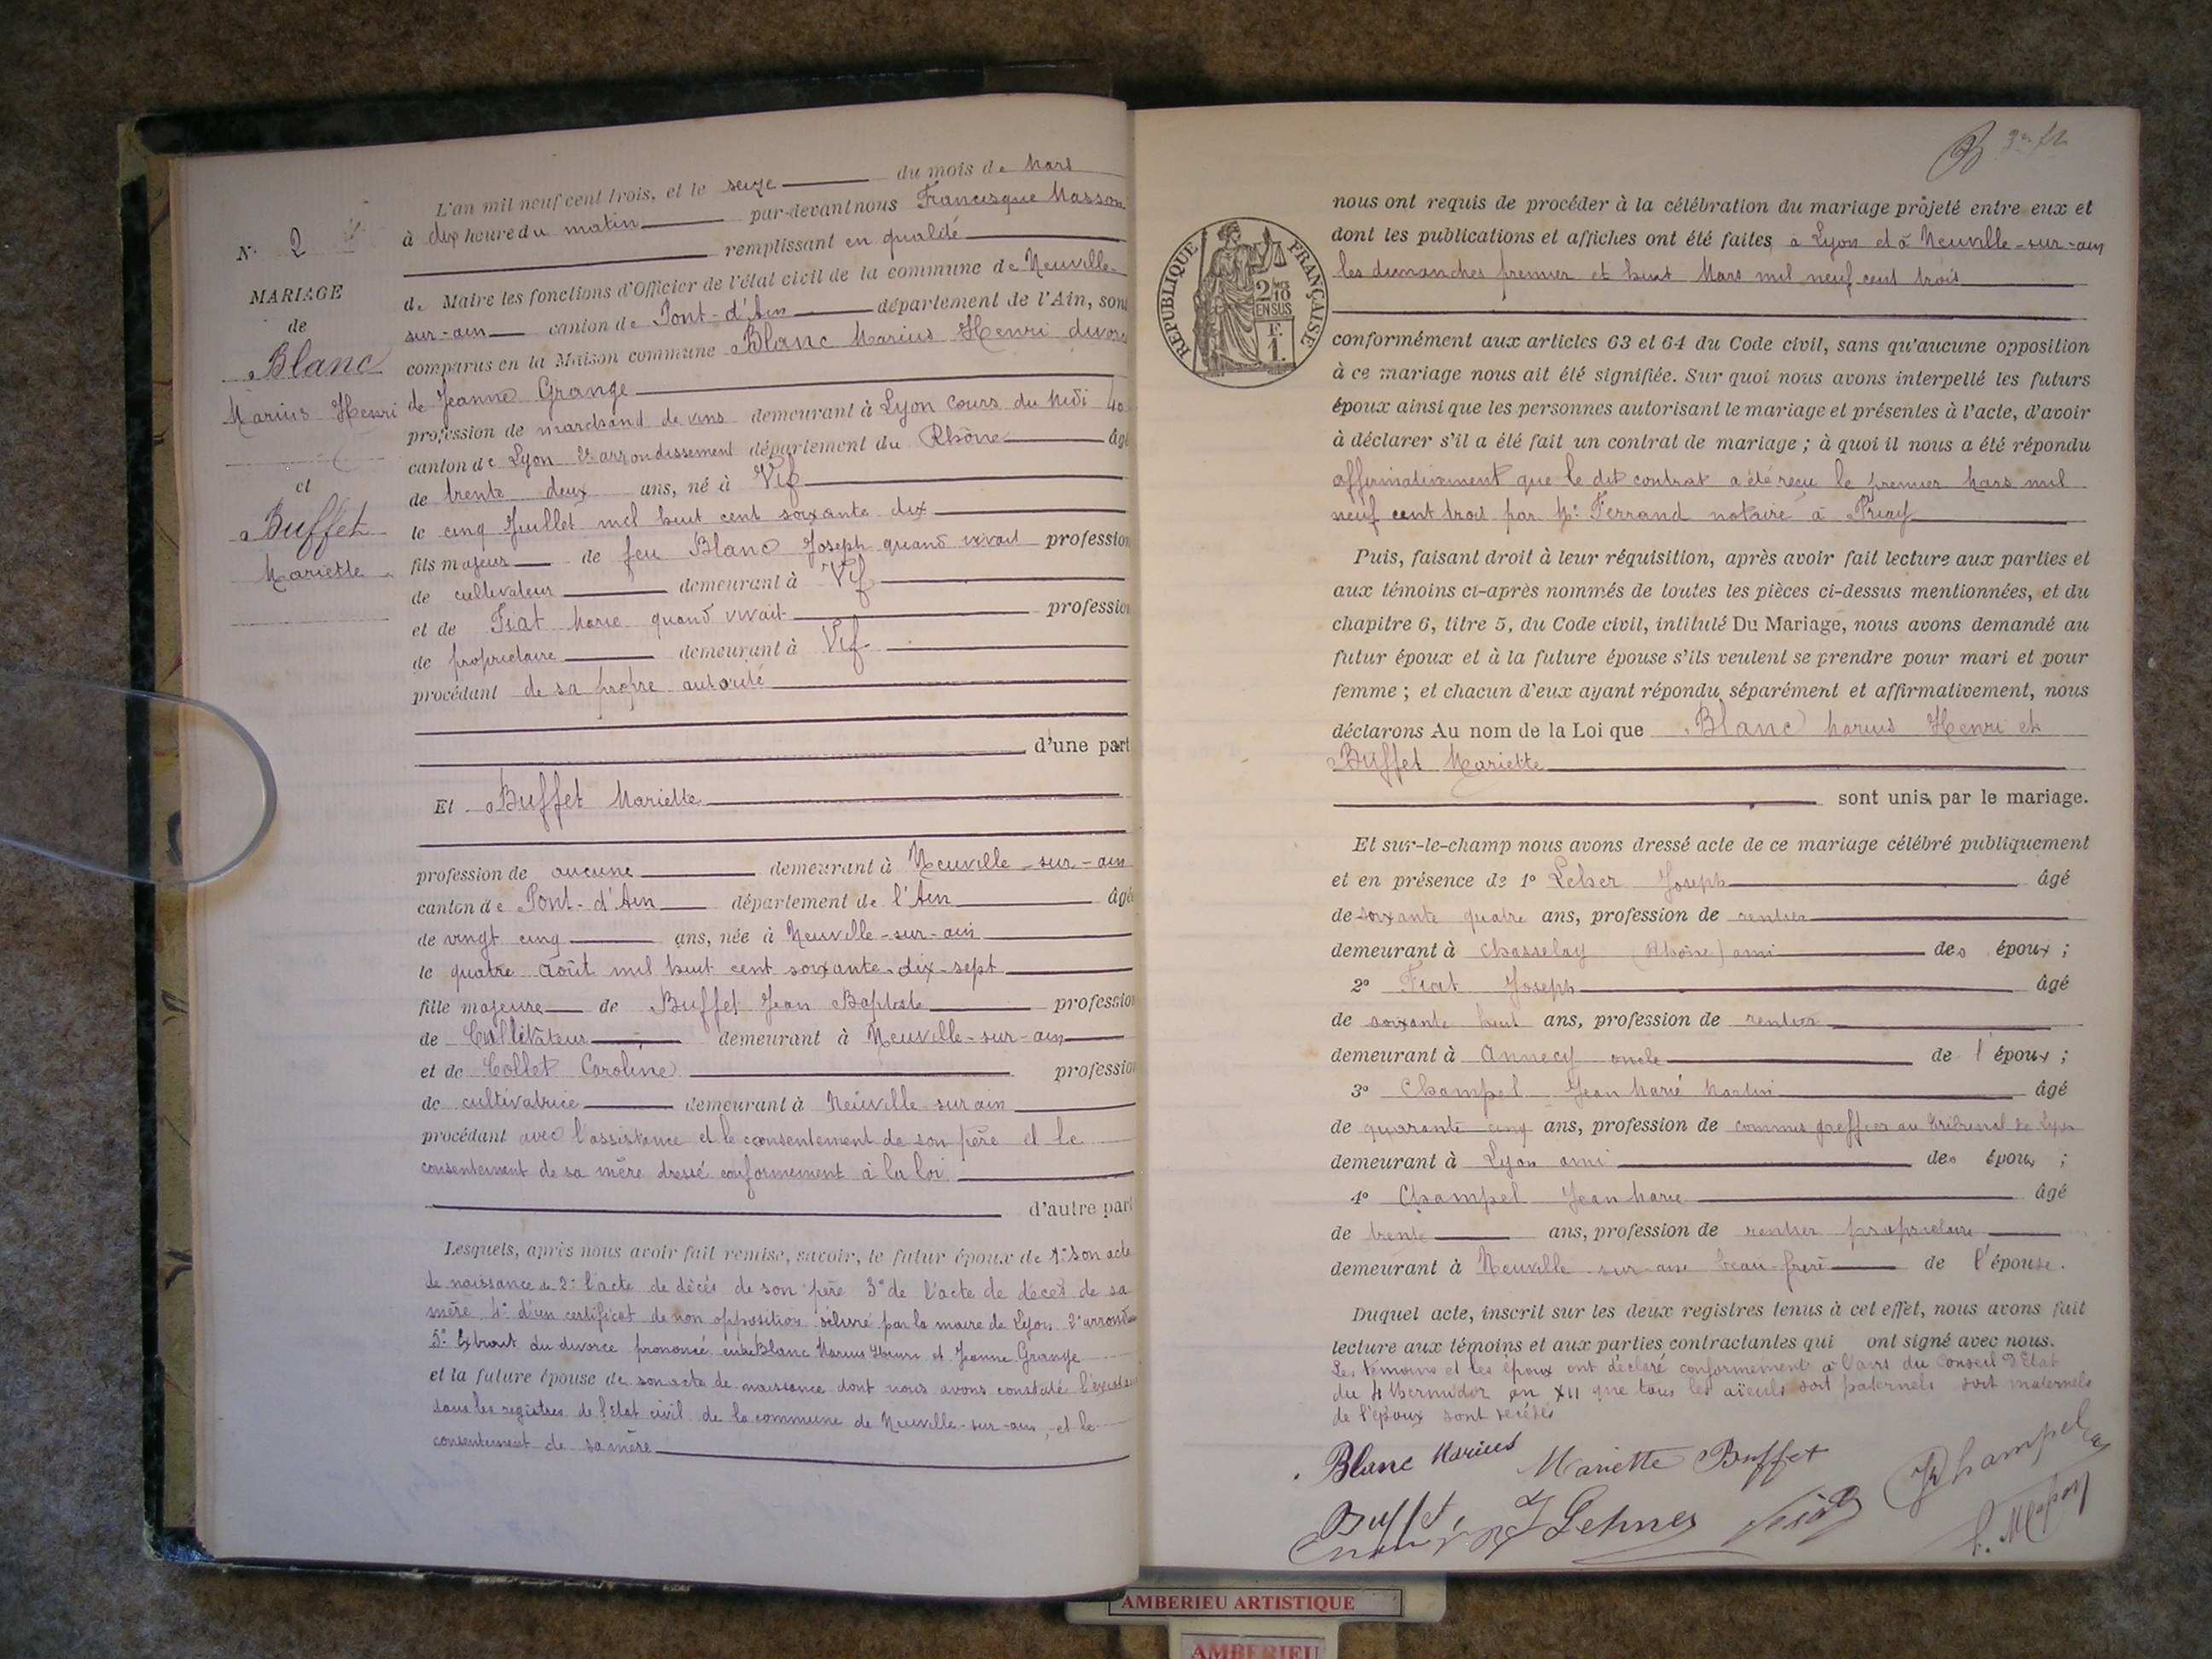 N° 2
MARIAGE
de
Blanc
Marius Henri
et
Buffet
Mariette
L'an mil neuf cent trois, et le seize du mois de Mars
à dix heure du matin par-devant nous Francisque Masson
remplissant en qualité
de Maire les fonctions d'Officier de l'état civil de la commune de Neuville-
sur-ain canton de Pont-d'Ain département de l'Ain, sont
comparus en la Maison commune Blanc Marius Henri divorcé
de Jeanne Grange
profession de marchand de vins demeurant à Lyon Cours du Midi 40
canton de Lyon 2e arrondissement département du Rhône âgé
de trente deux ans, né à Vif
le cinq Juillet mil huit cent soixante dix
fils majeur de feu Blanc Joseph quand vivait profession
de cultivateur demeurant à Vif
et de Fiat Marie quand vivait profession
de propriétaire demeurant à Vif
procédant de sa propre autorité
d'une part
Et Buffet Mariette
profession de aucune demeurant à Neuville-sur-ain
canton de Pont-d'Ain département de l'Ain âgée
de vingt cinq ans, née à Neuville-sur-ain
le quatre Août mil huit cent soixante-dix-sept
fille majeure de Buffet Jean Baptiste profession
de Cultivateur demeurant à Neuville-sur-ain
et de Collet Caroline profession
de cultivatrice demeurant à Neuville sur ain
procédant avec l'assistance et le consentement de son père et le
consentement de sa mère dressé conformement à la loi
d'autre part
Lesquels, après nous avoir fait remise, savoir, le futur époux de 1° son acte
de naissance de 2° l'acte de décès de son père 3° de l'acte de décès de sa
mère 4° d'un certificat de non opposition délivré par la maire de Lyon 2e arrond
5° Extrait du divorce prononcé entre Blanc Marius Henri et Jeanne Grange
et la future épouse de son acte de naissance dont nous avons constaté l'existence
dans les registres de l'Etat civil de la commune de Neuville-sur-ain, et le
consentement de sa mère
RÉPUBLIQUE FRANÇAISE
2/10
EN SUS
F.
1.
nous ont requis de procéder à la célébration du mariage projeté entre eux et
dont les publications et affiches ont été faites à Lyon et à Neuville-sur-ain
les dimanches premier et huit Mars mil neuf cent trois
conformément aux articles 63 et 64 du Code civil, sans qu'aucune opposition
à ce mariage nous ait été signifiée. Sur quoi nous avons interpellé les futurs
époux ainsi que les personnes autorisant le mariage et présentes à l'acte, d'avoir
à déclarer s'il a été fait un contrat de mariage ; à quoi il nous a été répondu
affirmativement que le dit contrat a été reçu le premier Mars mil
neuf cent trois par Me Ferrand notaire à Priay
Puis, faisant droit à leur réquisition, après avoir fait lecture aux parties et
aux témoins ci-après nommés de toutes les pièces ci-dessus mentionnées, et du
chapitre 6, titre 5, du Code civil, intitulé Du Mariage, nous avons demandé au
futur époux et à la future épouse s'ils veulent se prendre pour mari et pour
femme ; et chacun d'eux ayant répondu séparément et affirmativement, nous
déclarons Au nom de la Loi que Blanc Marius Henri et
Buffet Mariette
sont unis par le mariage.
Et sur-le-champ nous avons dressé acte de ce mariage célébré publiquement
et en présence de 1° Joseph âgé
de soixante quatre ans, profession de rentier
demeurant à Chasselay (Rhône) ami des époux ;
2° Fiat Joseph âgé
de soixante huit ans, profession de rentier
demeurant à Annecy oncle de l'époux ;
3° Champel Jean Marie Martin âgé
de quarante cinq ans, profession de commis greffier au tribunal de Lyon
demeurant à Lyon ami des époux ;
4° Champel Jean Marie âgé
de trente ans, profession de rentier propriétaire
demeurant à Neuville sur ain beau-frère de l'épouse.
Duquel acte, inscrit sur les deux registres tenus à cet effet, nous avons fait
lecture aux témoins et aux parties contractantes qui ont signé avec nous.
Les témoins et les époux ont déclaré conformement à l'avis du Conseil d'Etat
du 4 thermidor an XII que tous les aïeuls soit paternels soit maternels
de l'époux sont décédés
Blanc Marius Mariette Buffet Champel
Buffet J Lehner Fiat
AMBERIEU ARTISTIQUE
AMBERIEU